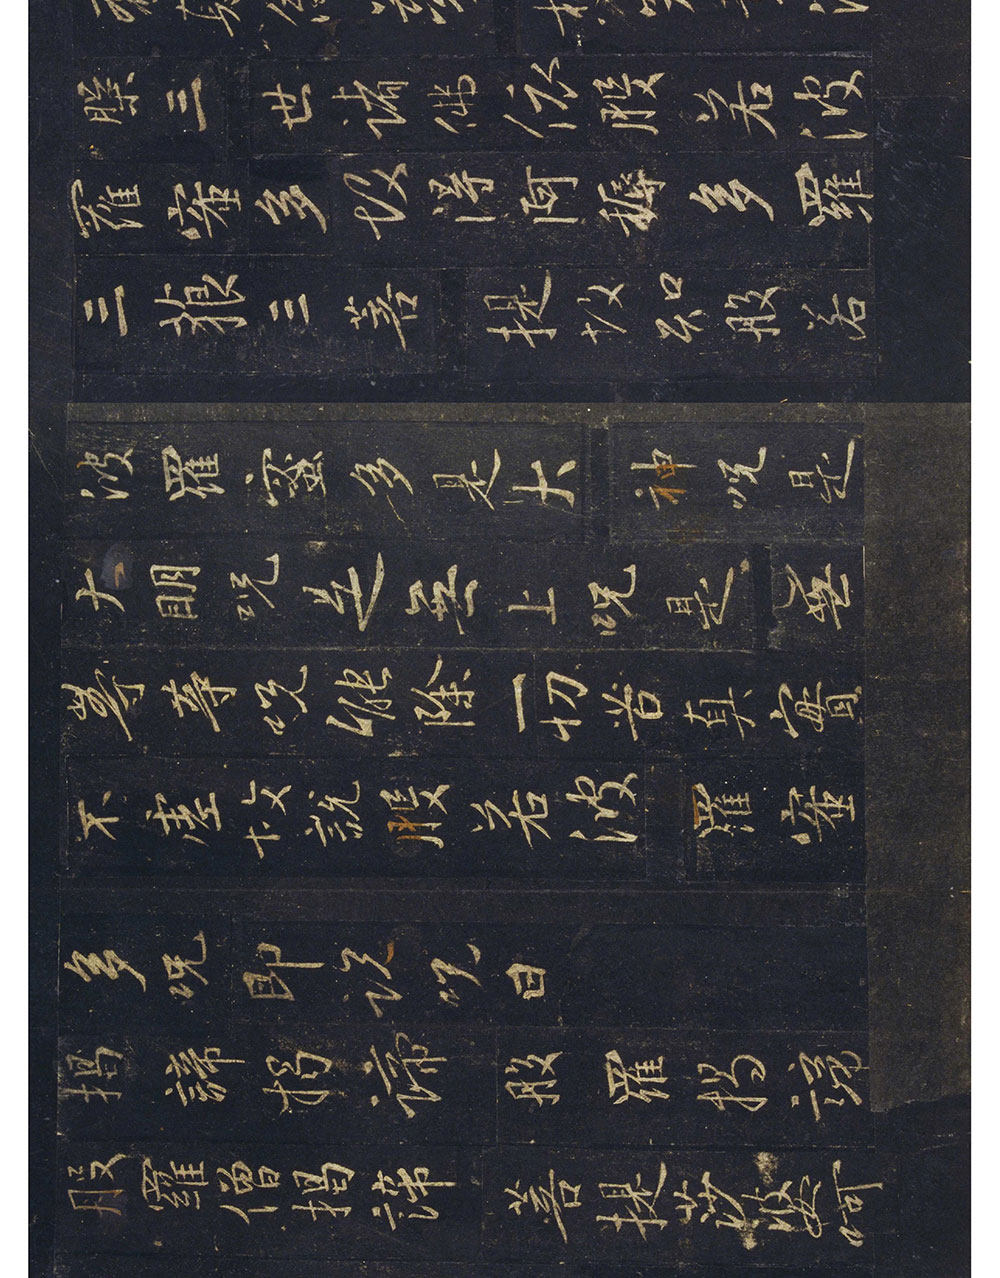 槃三世諸佛依般若波
羅蜜多故得阿耨多羅
三藐三菩提故知般若
波羅蜜多是大神咒是
大明咒是無上咒是無
等等咒能除一切苦真實
不虛故說般若波羅蜜
多咒即說咒曰
揭諦揭諦般羅揭諦
般羅僧揭諦菩提莎婆呵